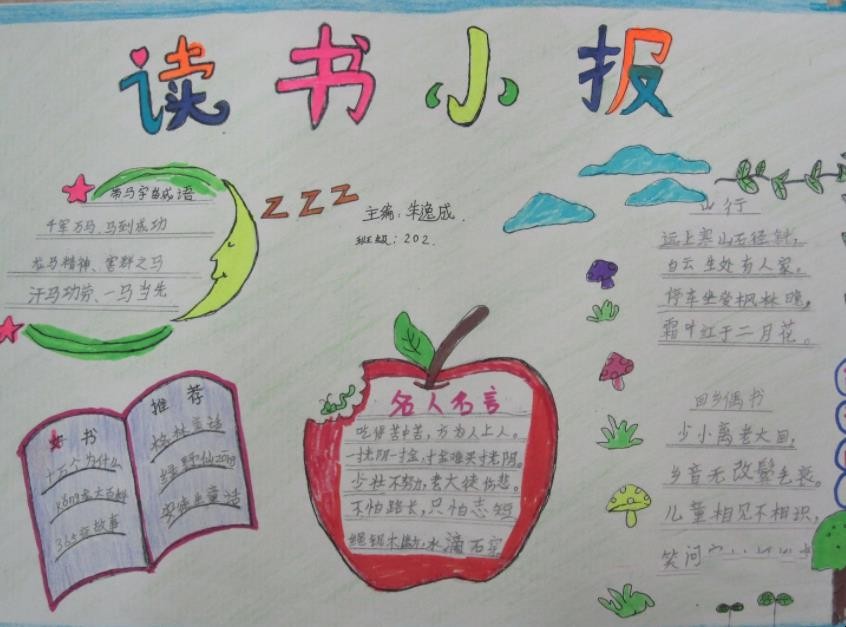 读书小报
带马字的成语
千军万马、马到成功
龙马精神、害群之马
汗马功劳、一马当先
Z Z Z
主编:朱逸成.
班级:202.
好书
十万个为什么
kǒng龙大百科
365夜故事
推荐
格林童话
绿野仙zōng
安徒生童话
名人名言
吃得苦中苦,方为人上人。
少壮不努力,老大徒伤悲。
不怕路长,只怕志短
绳锯木断,水滴石穿
山行
远上寒山石径斜,
白云生处有人家。
停车坐爱枫林晚,
霜叶红于二月花。
回乡偶书
少小离老大回,
乡音无改鬓毛衰。
儿童相见不相识,
笑问